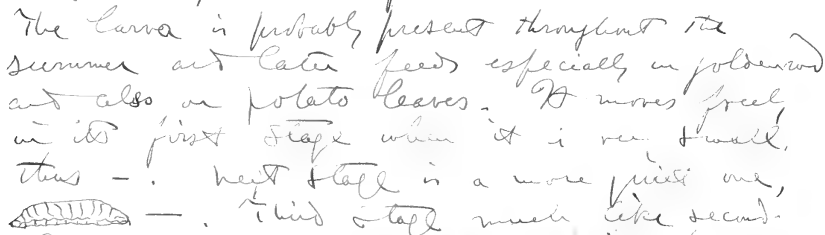 The larva is probably present throughout the
summer and later feeds especially on goldenrod
and also on potato leaves. It moves freely
in its first stage when it is very small,
thus – . Next stage is a more quiet one,
– . Third stage much like second.